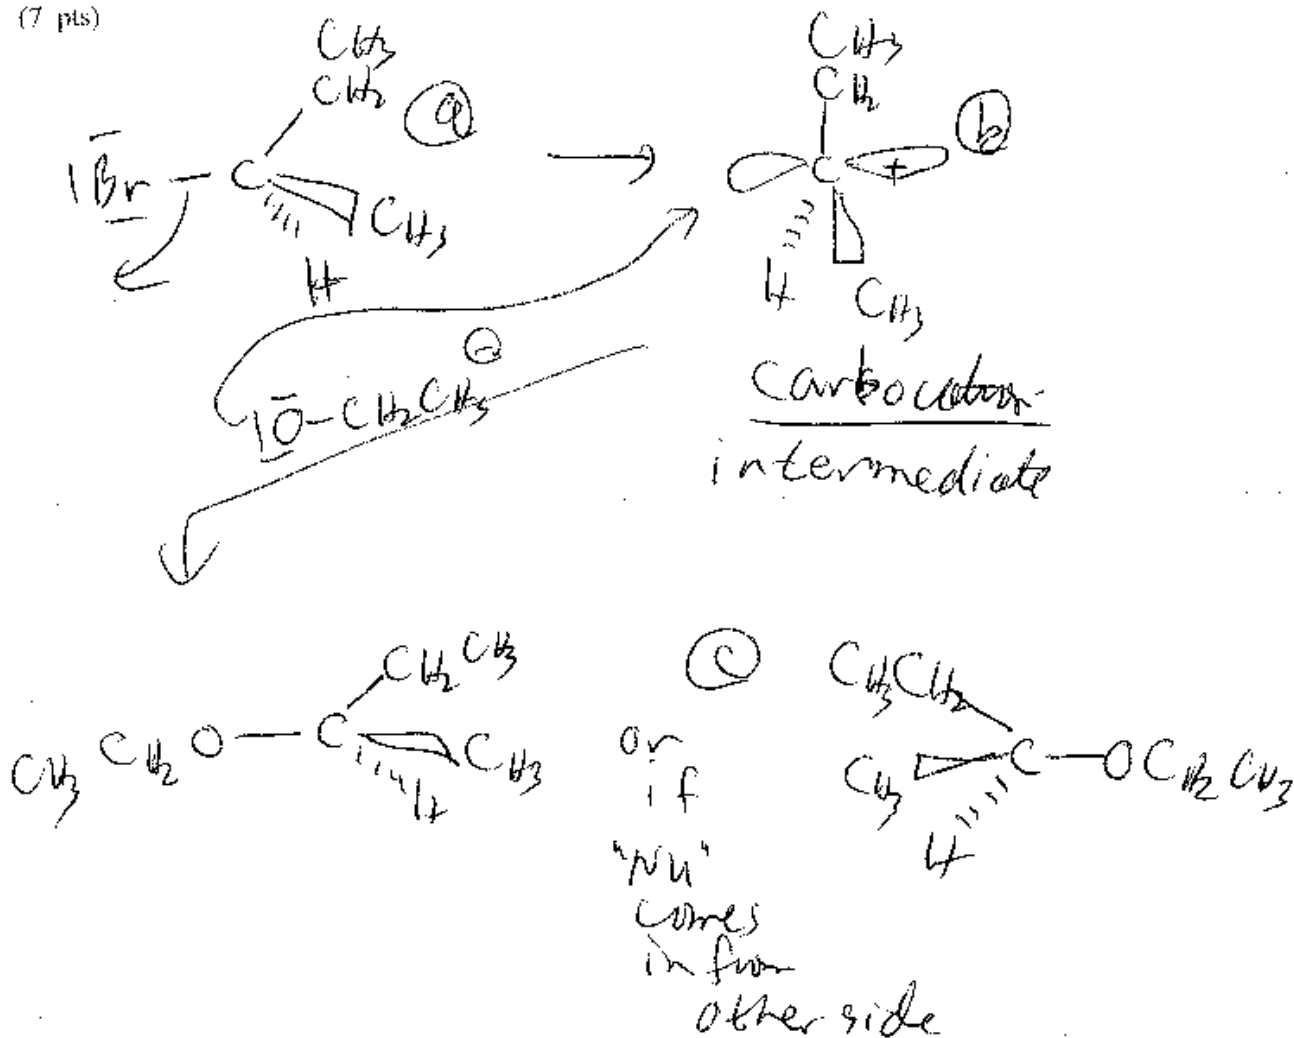 (7 pts)
CH3
CH2
a
Br - C
CH3
H
CH3
CH2
b
C +
H
CH3
carbocation
intermediate
⊖
O-CH2CH3
CH2CH3
CH3 CH2 O - C
CH3
H
c
or
if
"Nu"
comes
in from
other side
CH3CH2
CH3
C - OCH2CH3
H